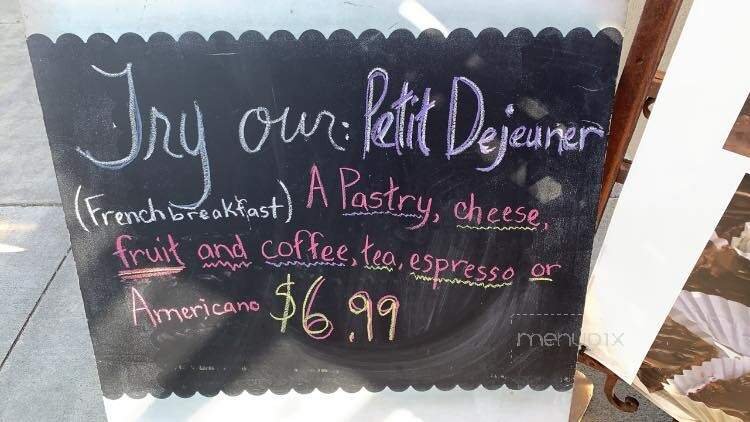 Try our: Petit Dejeuner
(French breakfast) A Pastry, cheese,
fruit and coffee, tea, espresso or
Americano $6.99
menupix